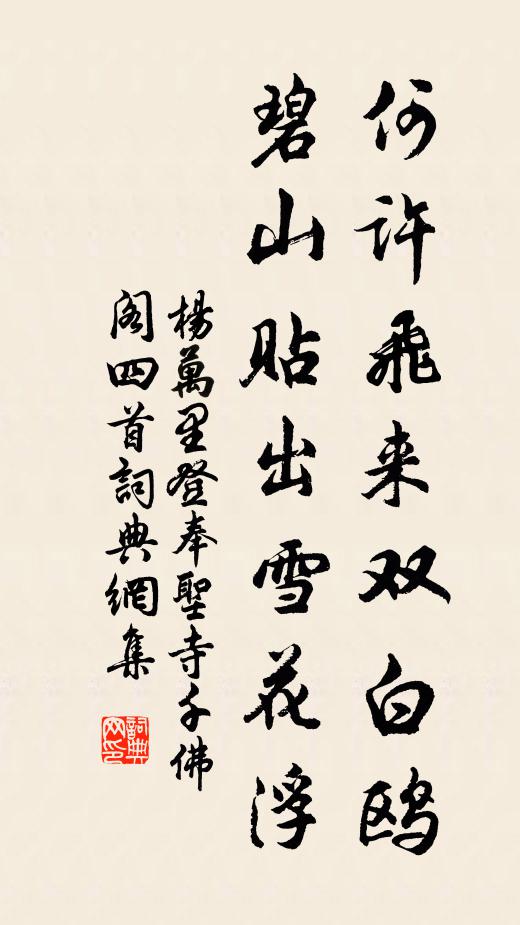 何许飛来双白鸥
碧山贴出雪花浮
楊萬里登奉聖寺千佛
閣四首詞典網集
詞典网印